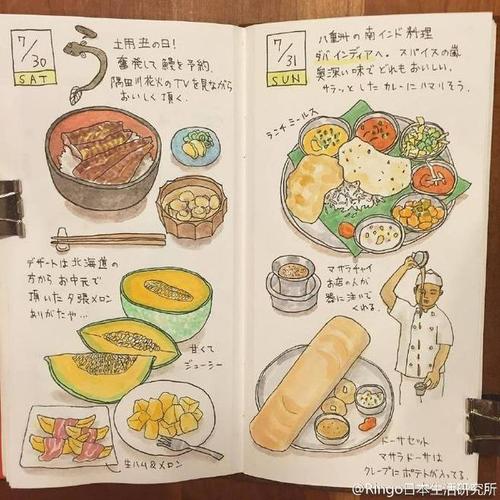 7/30
SAT
土用丑の日!
奮発して鰻を予約。
隅田川花火のTVを見ながら
おいしく頂く。
デザートは北海道の
方からお中元で
頂いた夕張メロン
ありがたや…
甘くて
ジューシー
生ハム&メロン
7/31
SUN
八重洲の南インド料理
ダバ インディアへ。スパイスの嵐
奥深い味でどれもおいしい。
サラッとしたカレーにハマりそう。
ランチミールス
マサラチャイ
お店の人が
器に注いで
くれる。
ドーサセット
マサラドーサは
クレープにポテトが入ってる。
@Ringo日本生活研究所